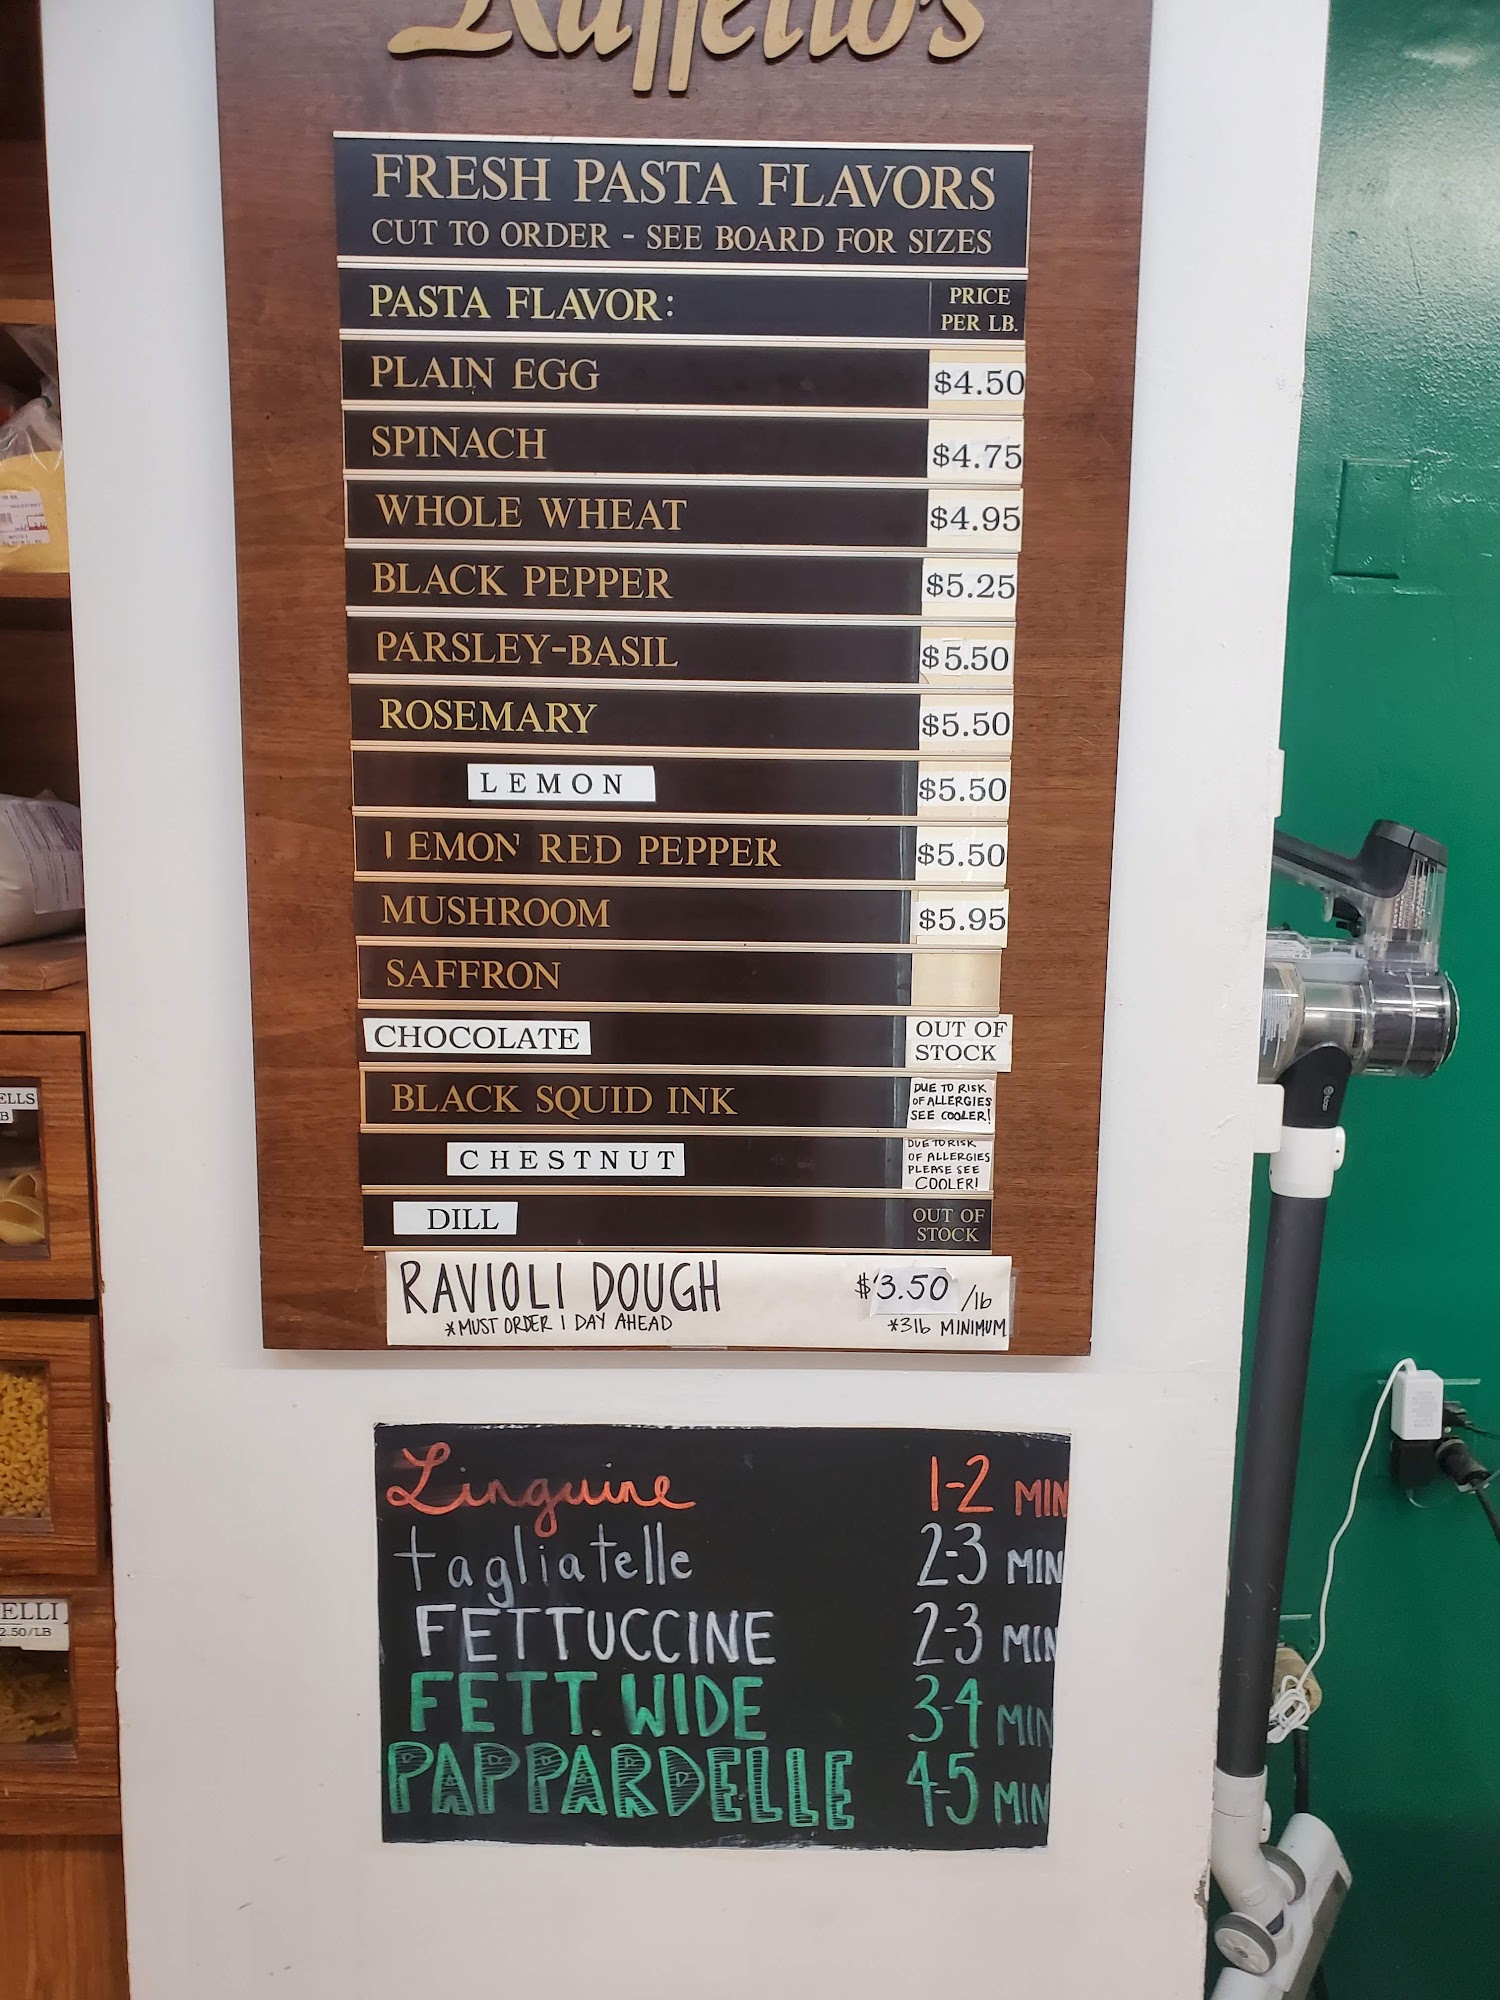 Raffetto's
FRESH PASTA FLAVORS
CUT TO ORDER - SEE BOARD FOR SIZES
PASTA FLAVOR: PRICE
PER LB.
PLAIN EGG $4.50
SPINACH $4.75
WHOLE WHEAT $4.95
BLACK PEPPER $5.25
PARSLEY-BASIL $5.50
ROSEMARY $5.50
LEMON $5.50
LEMON RED PEPPER $5.50
MUSHROOM $5.95
SAFFRON
CHOCOLATE OUT OF
STOCK
BLACK SQUID INK DUE TO RISK
OF ALLERGIES
SEE COOLER!
CHESTNUT DUE TO RISK
OF ALLERGIES
PLEASE SEE
COOLER!
DILL OUT OF
STOCK
RAVIOLI DOUGH $3.50 /lb
*MUST ORDER 1 DAY AHEAD *3lb MINIMUM
Linguine 1-2 MIN
tagliatelle 2-3 MIN
FETTUCCINE 2-3 MIN
FETT. WIDE 3-4 MIN
PAPPARDELLE 4-5 MIN
ELLS
B
ELLI
2.50/LB